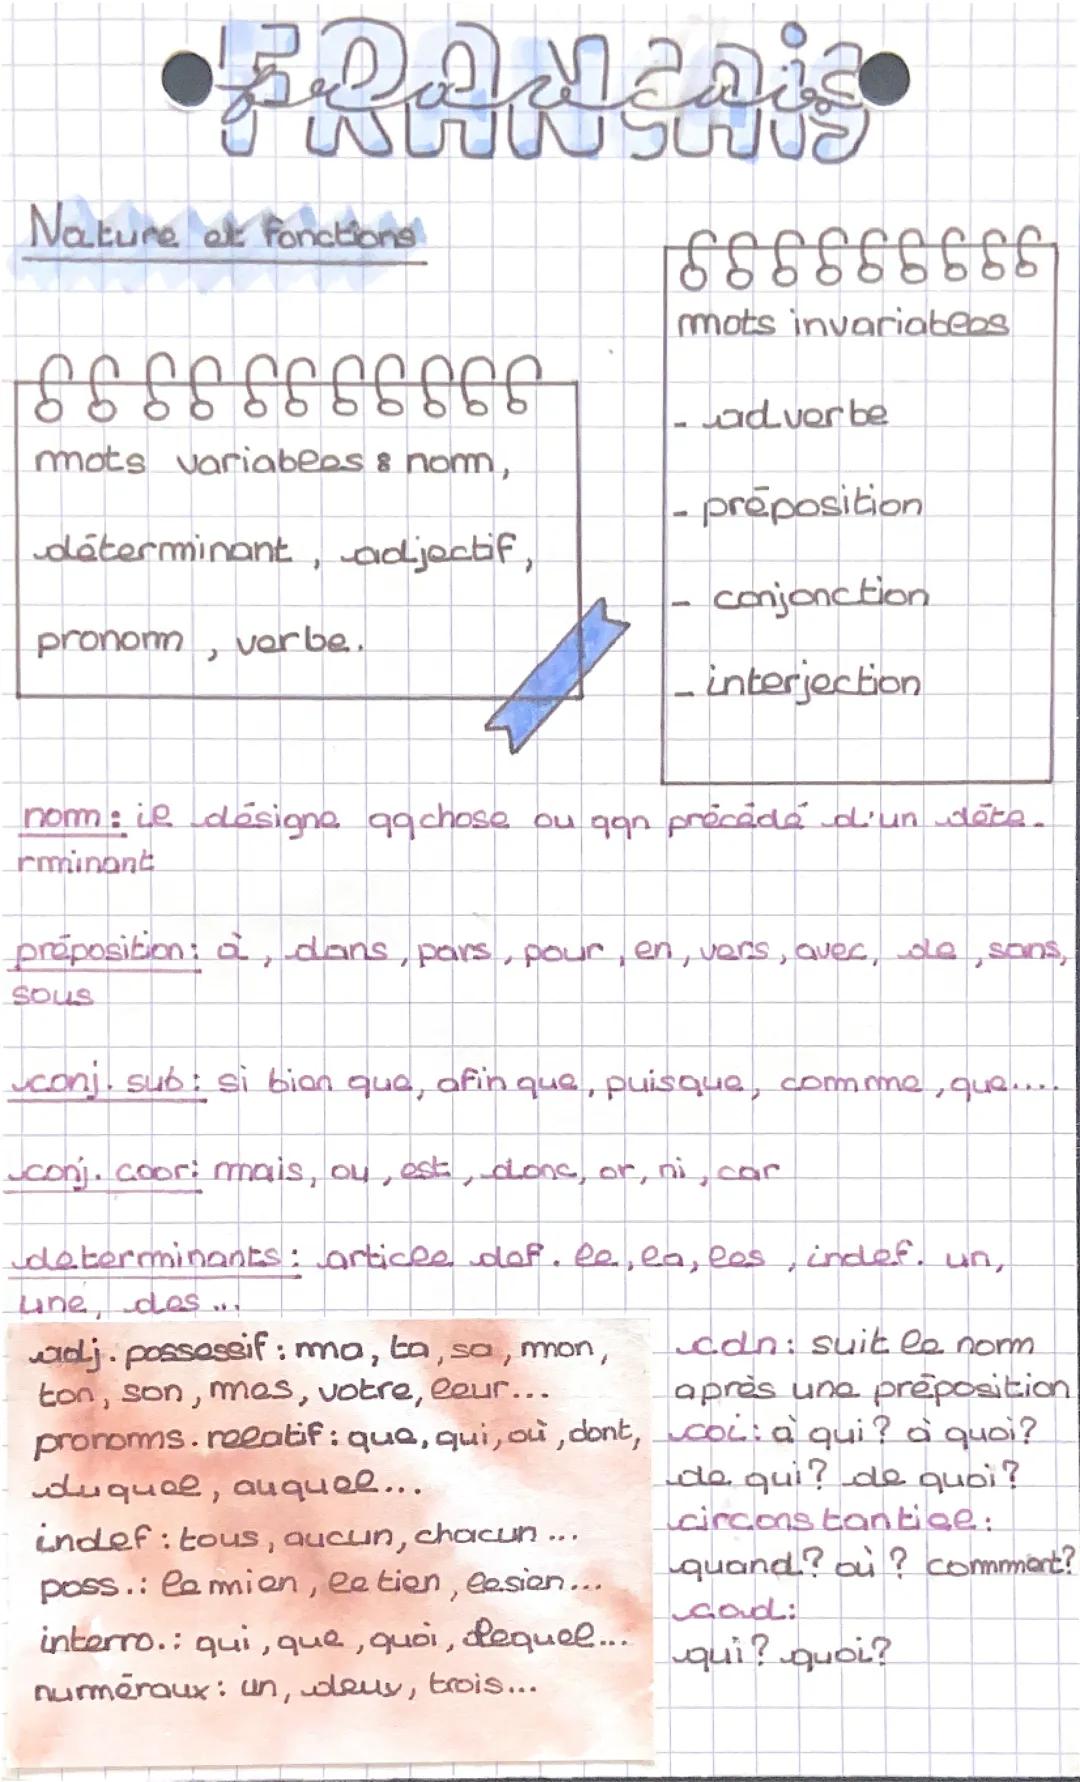 FRANÇAIS
français
Nature et fonctions
mots variables : nom,
déterminant, adjectif,
pronom, verbe.
mots invariables
- adverbe
- préposition
- conjonction
- interjection
nom : il désigne qqchose ou qqn précédé d'un déte-
rminant
préposition : à, dans, pars, pour, en, vers, avec, de, sans,
sous
conj. sub : si bien que, afin que, puisque, comme, que....
conj. coor : mais, ou, est, donc, or, ni, car
determinants : article def. le, la, les, indef. un,
une, des ...
adj. possessif : ma, ta, sa, mon,
ton, son, mes, votre, leur...
pronoms. relatif : que, qui, où, dont,
duquel, auquel...
indef : tous, aucun, chacun ...
poss. : le mien, le tien, lesien...
interro. : qui, que, quoi, lequel...
numéraux : un, deux, trois...
cdn : suit le nom
après une préposition
coi : à qui ? à quoi ?
de qui ? de quoi ?
circonstantiel :
quand ? où ? comment ?
cod :
qui ? quoi ?